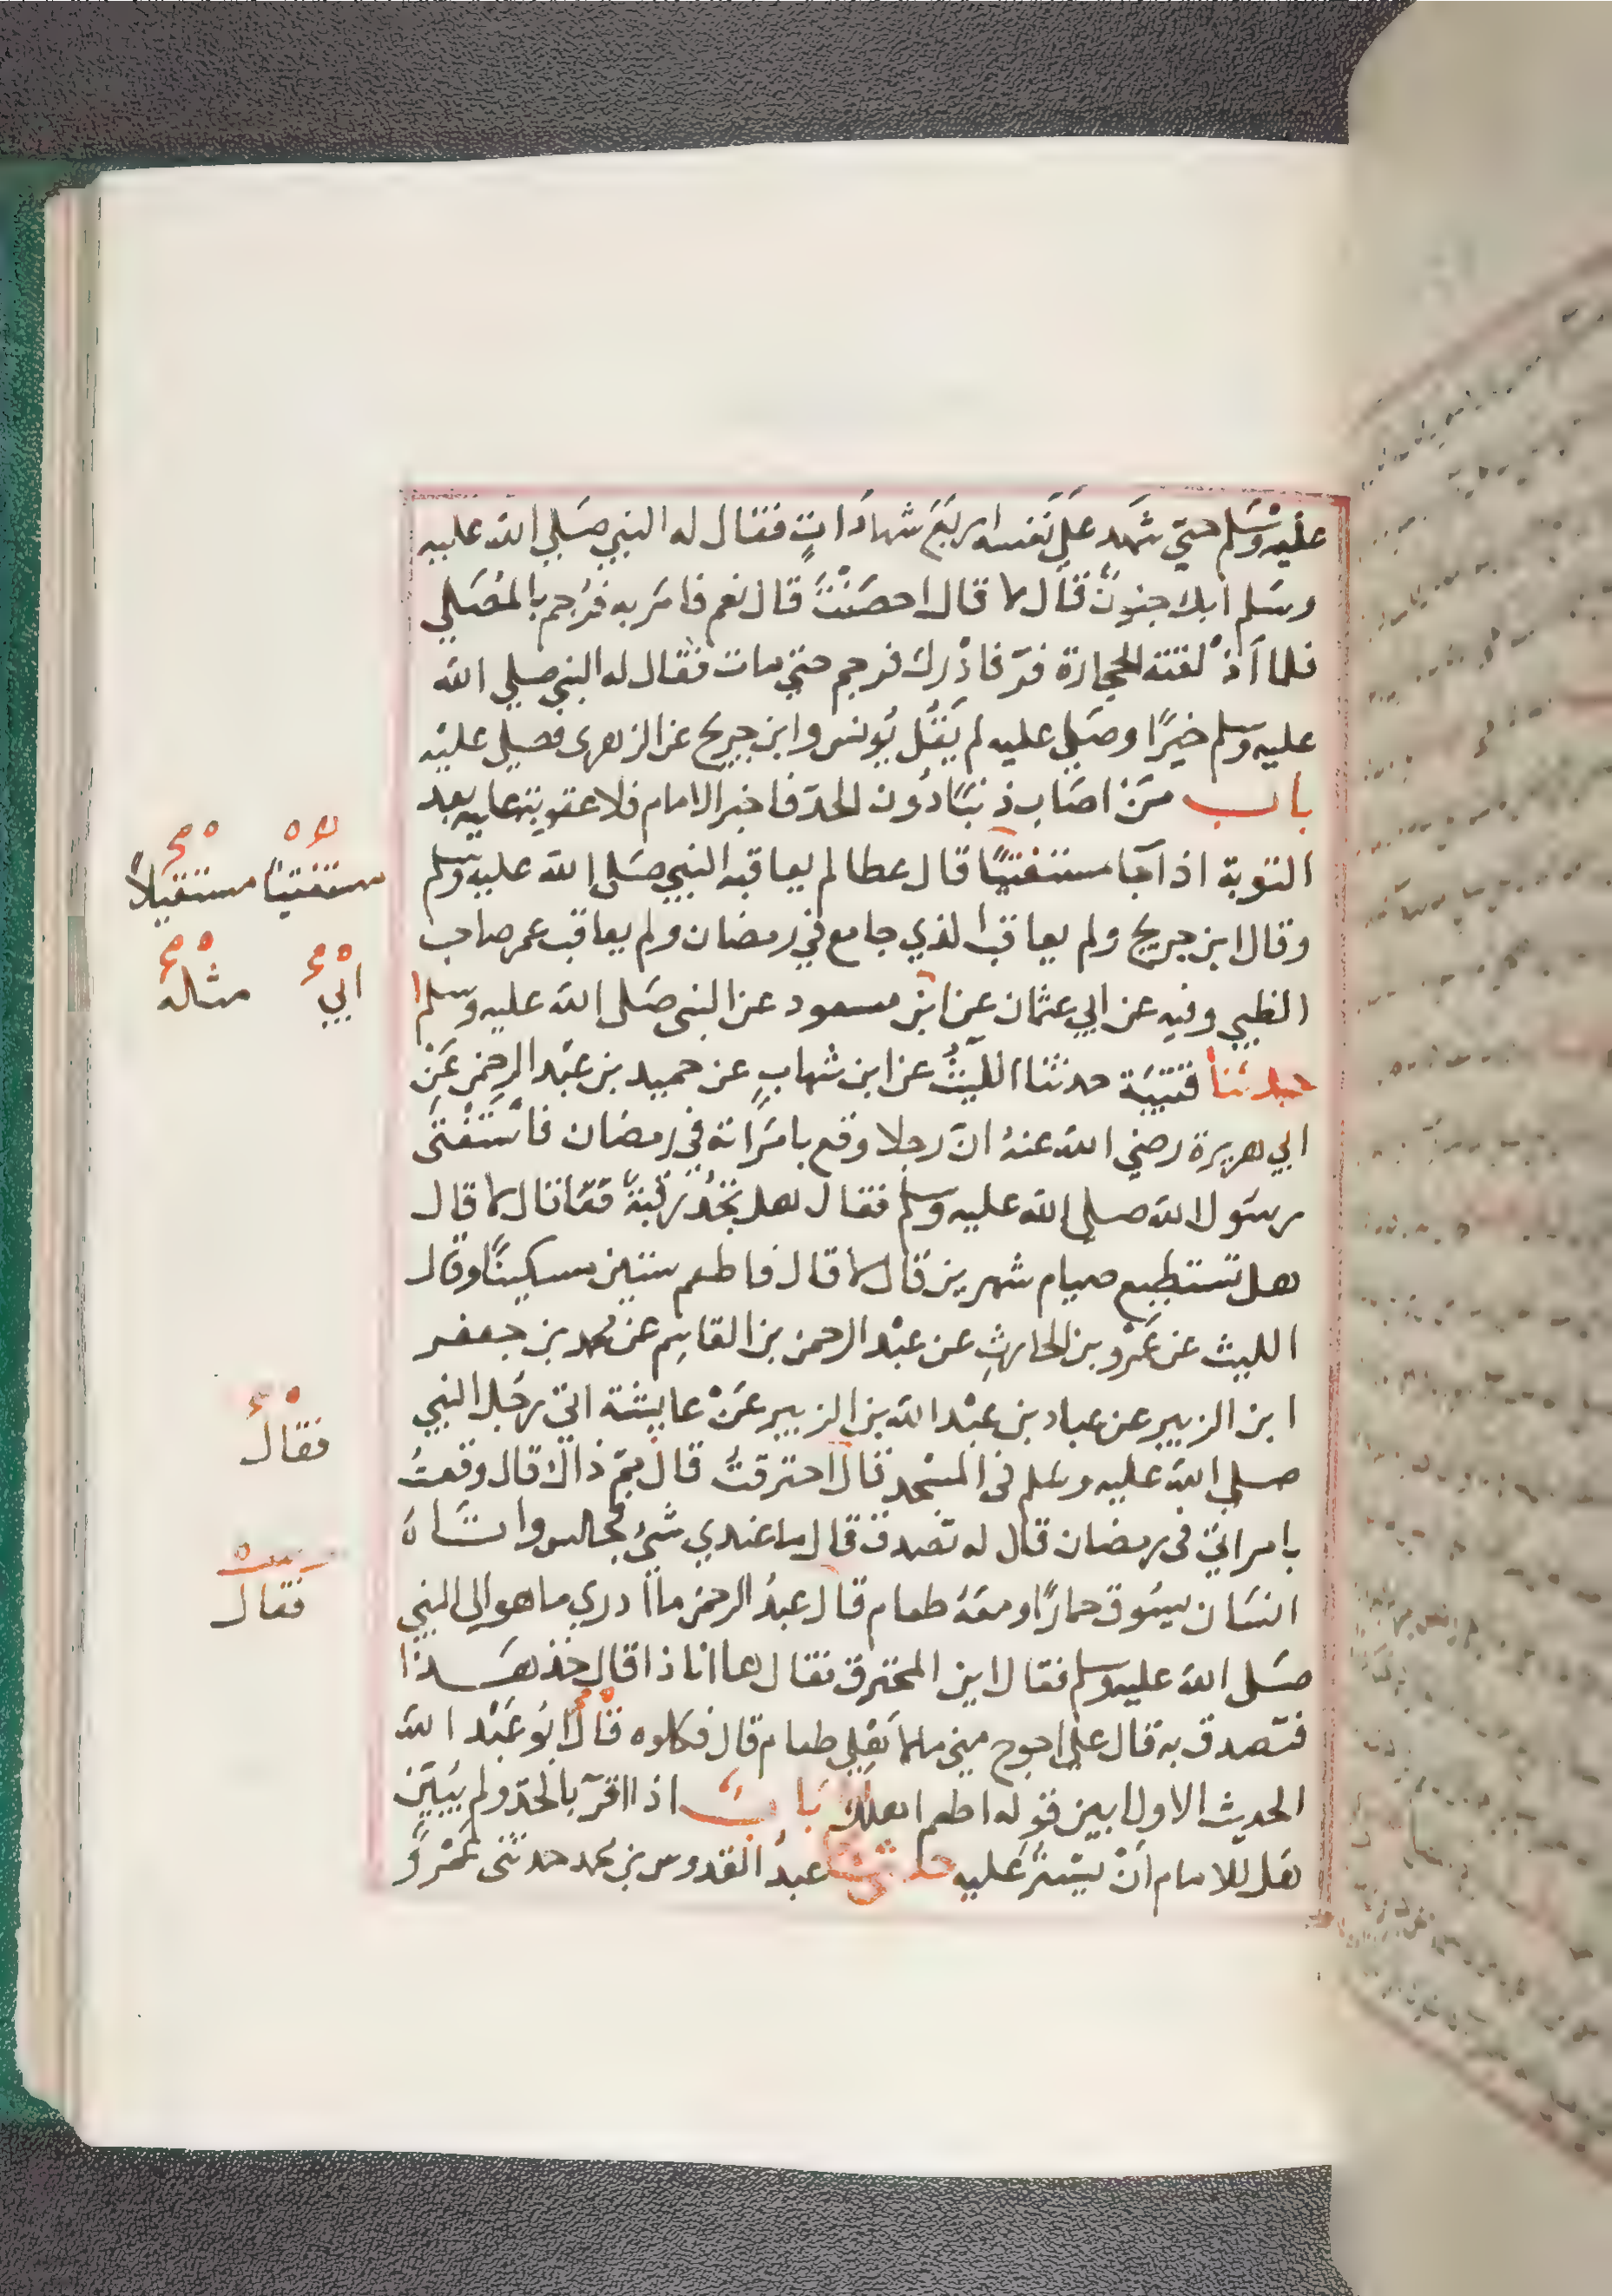 عليْه وَسَلم حتيّ شَهد عَلَى نَفسه اربَعَ شهادَاتٍ فقال له النبي صَلي الله عليه
وسَلم ابك جنونٌ قال لا قال احصَنْتَ قال نعم فامَر به فرُجم بالمُصَلي
فلما اَذْلقته الحجارة فرّ فاذْرك فرجم حتيّ مات فقال له النبي صلي الله
عليه وسلم خيرًا وصَلي عليه لم يَقُل يُونس وابن جريج عن الزهرى فصلي عليْه
باب مَنْ اصَاب ذنبًا دُون الحدّ فاخبر الامام فلا عقوبة عليه بعد
التوبة اذا جَا مستفتيًا قال عطا لم يعاقبه النبي صَلي الله عليه وسلم
وقال ابن جريج ولم يعاقب الذي جامع في رمضان ولم يعاقب عمر صاحب
الظبي وفيه عن ابي عثمان عن ابن مسعود عن النبي صَلى الله عليه وسلم
حدثنا قتيبَة حدثنا الليثُ عن ابن شهابٍ عن حميد بن عبْد الرحمن عَنْ
ابي هريرة رضي الله عنهُ انّ رجلا وقع بامرَاته في رمضان فاسْتَفْتَى
رسَول الله صلي الله عليه وسلم فقال هل تجدُ رقبةً فقا قال لا قال
هل تستطيع صيام شهرين قال لا قال فاطعم ستين مسكينًا وقال
الليث عن عَمْرو بن الحارثِ عن عبْد الرحمن بن القاسِم عن محمد بن جعفر
ابن الزبير عن عباد بن عبْد الله بن الزبير عَنْ عايشة اتى رجُل النبي
صلي الله عليه وسلم فى المسْجد قال احترقتُ قال ممّ ذاك قال وقعتُ
بامراتي فى رمضان قال له تصدق قال ما عندي شيُ فجالس واتَاهُ
انسَان يسُوق حمارًا ومعَهُ طعام قال عبدُ الرحمن ما ادري ما هو الى النبي
صَلى الله عليه وسلم فقال اين المحترق فقال ها انا ذا قال خذ هَذا
فتصدق به قال على احوج مني ما لاهْلِي طعام قال فكلوه قال ابُو عَبْد الله
الحديث الاول ابين قوله اطعم اهلك بَابٌ اذا اقرّ بالحدّ ولم يُبَيّن
هل للامام اَنْ يسْتُر عَليه حدثنا عبدُ القدوس بن محمد حدثنى عَمْرو
مستفتيًا مستقيلاً
ابي مثله
فقال
فقال